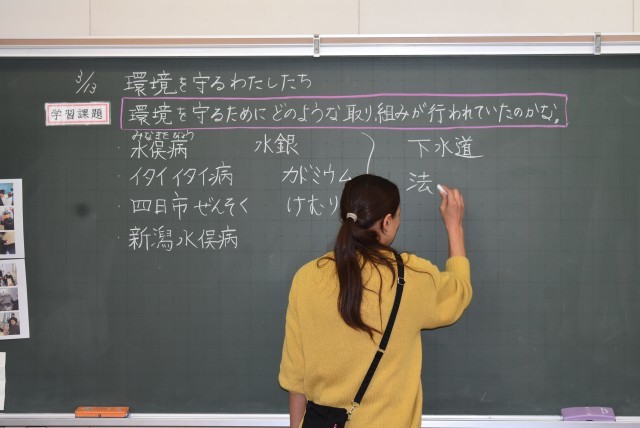 3/13 環境を守るわたしたち
学習課題 環境を守るためにどのような取り組みが行われていたのかな。
みなまたびょう
・水俣病 水銀 下水道
・イタイイタイ病 カドミウム 法
・四日市ぜんそく けむり
・新潟水俣病